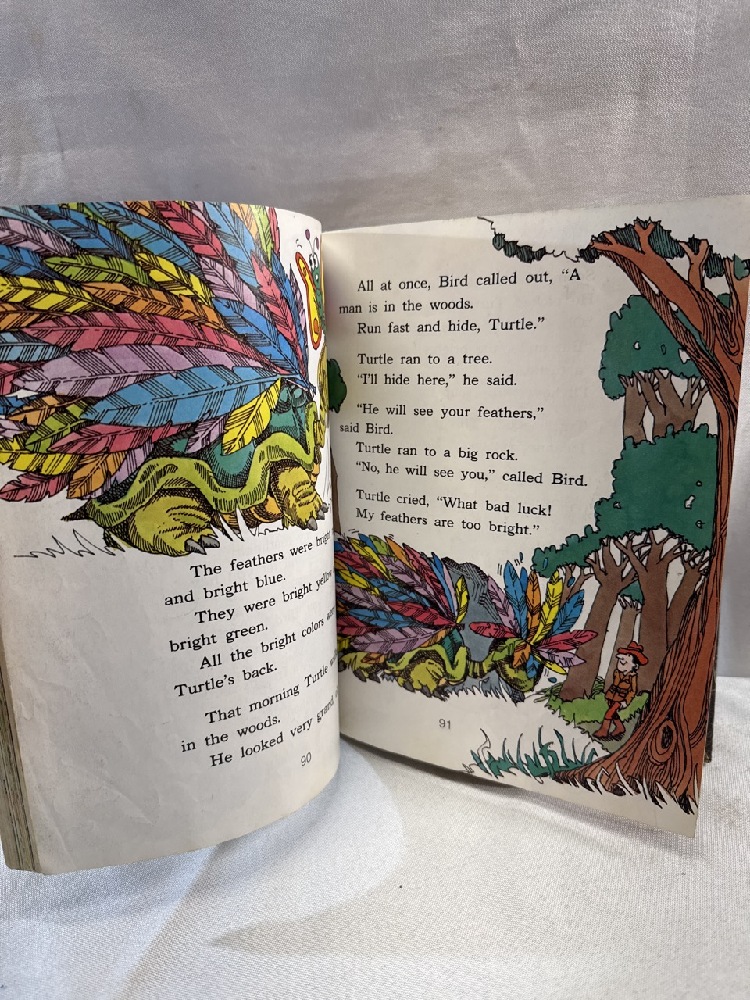 The feathers were bright
and bright blue.
They were bright yellow
bright green.
All the bright colors
Turtle's back.
That morning Turtle
in the woods.
He looked very
90
All at once, Bird called out, "A
man is in the woods.
Run fast and hide, Turtle."
Turtle ran to a tree.
"I'll hide here," he said.
"He will see your feathers,"
said Bird.
Turtle ran to a big rock.
"No, he will see you," called Bird.
Turtle cried, "What bad luck!
My feathers are too bright."
91